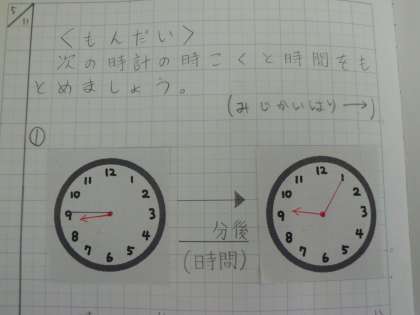 5/11
〈もんだい〉
次の時計の時こくと時間をも
とめましょう。
(みじかいはり→)
①
12 1 2 3 4 5 6 7 8 9 10 11
分後
(時間)
12 1 2 3 4 5 6 7 8 9 10 11